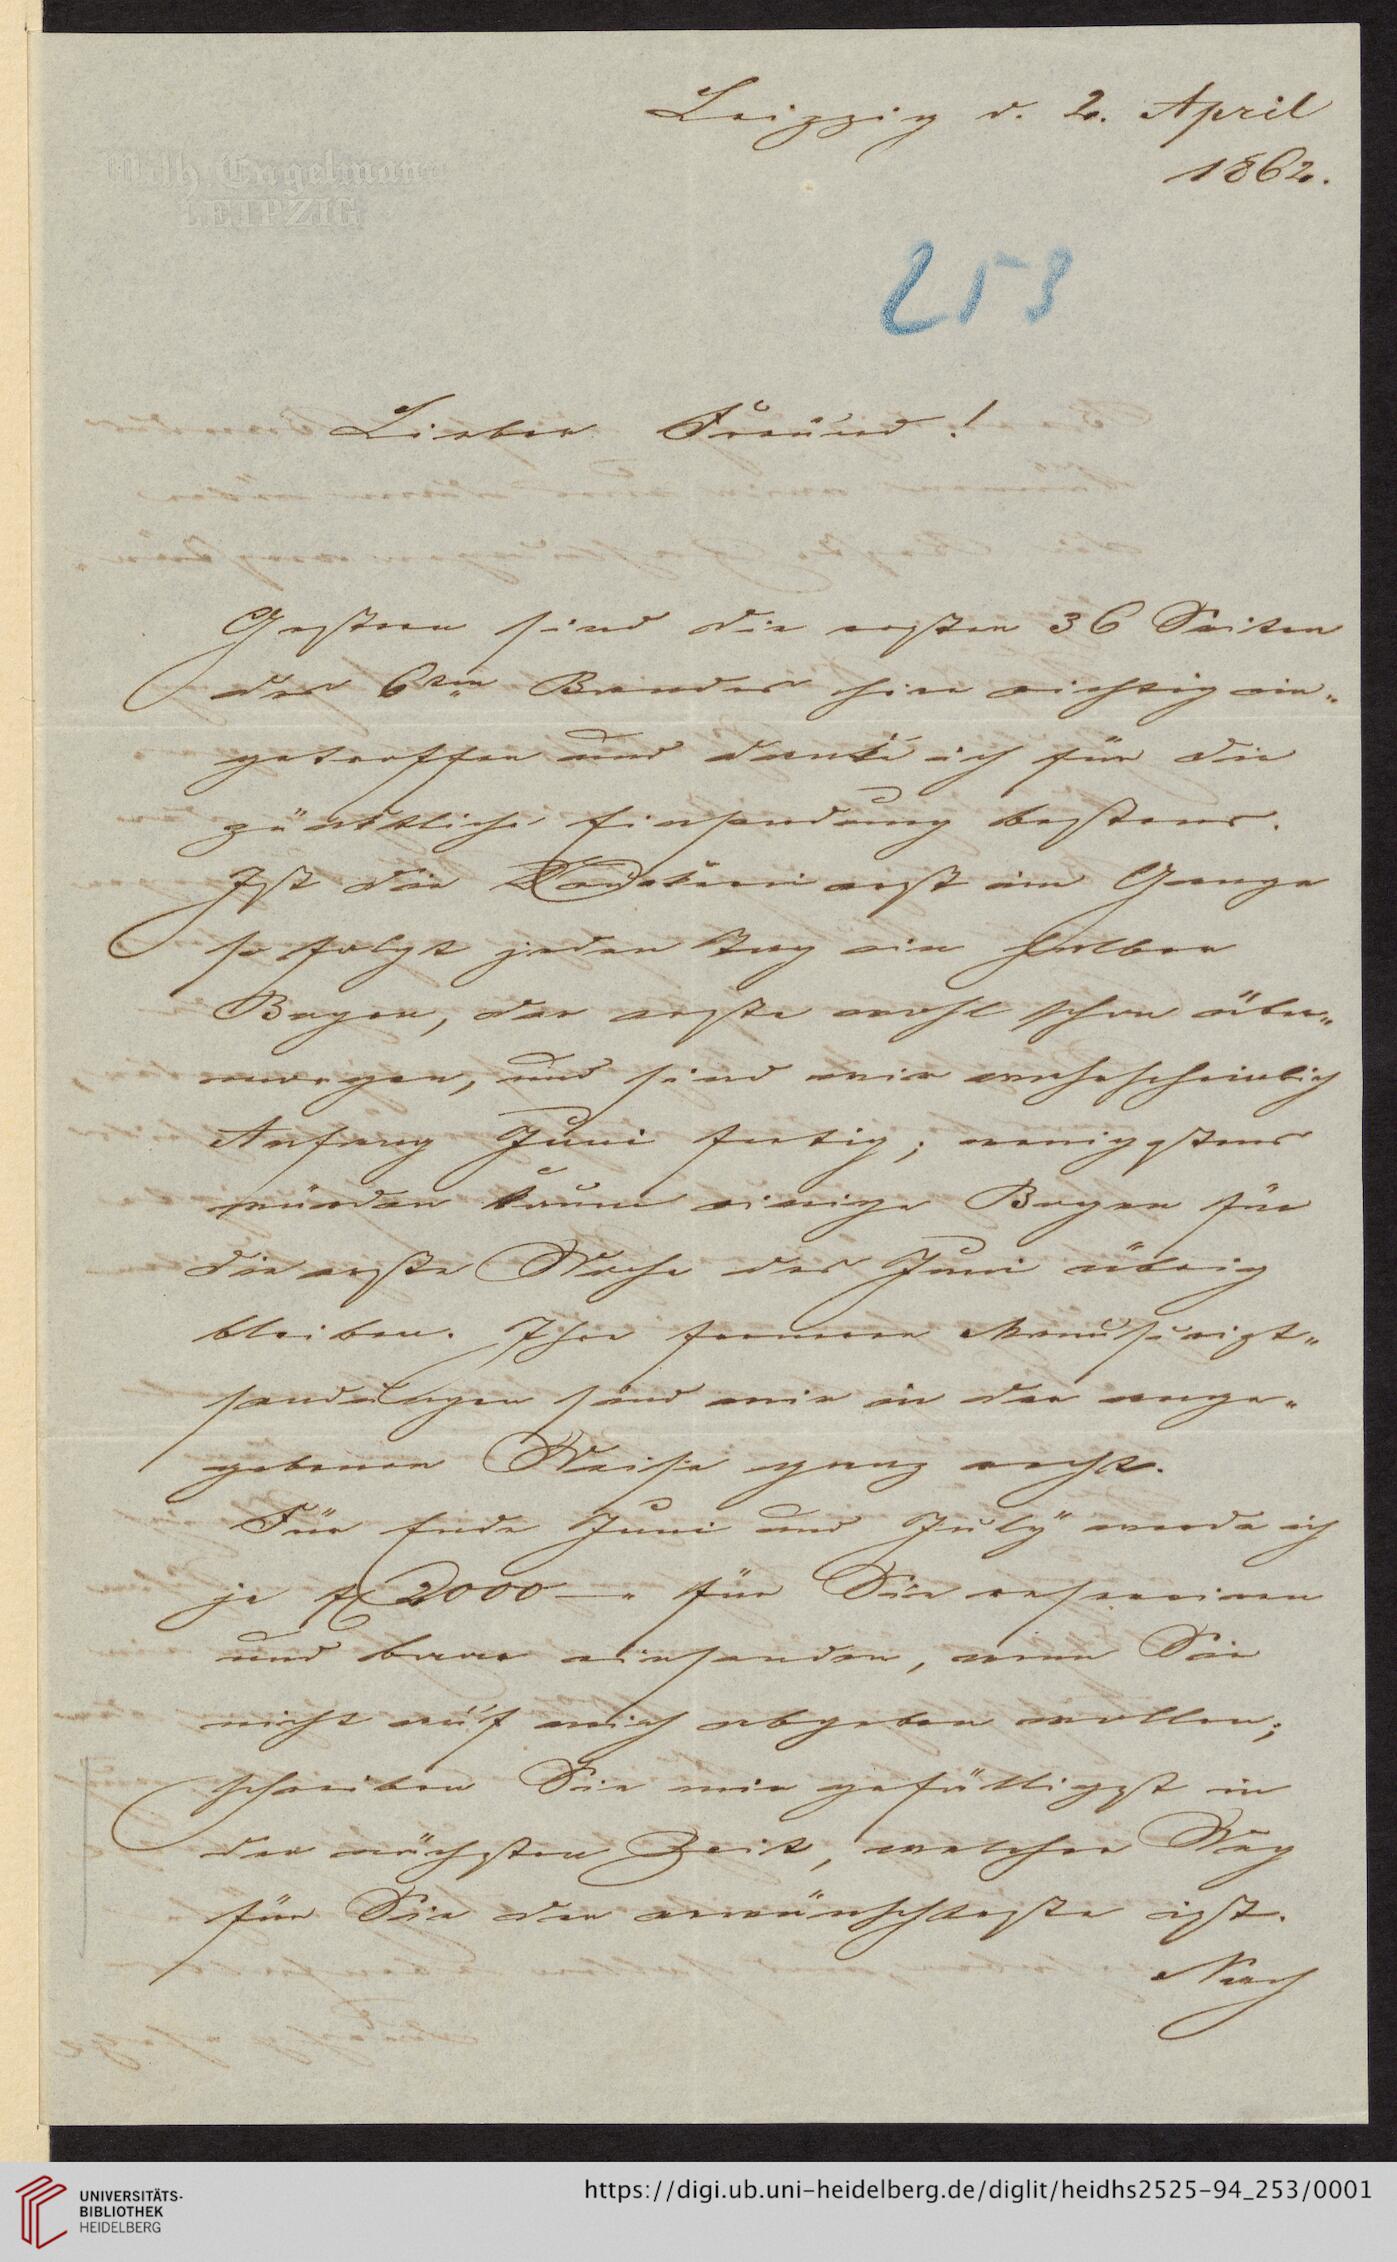 Leipzig d. 2. April
1862.
Wilh. Engelmann
LEIPZIG
253
Lieber Freund!
Gestern sind die ersten 36 Seiten
des 6ten Bandes hier richtig ein„
getroffen und danke ich für die
pünktliche Einsendung bestens.
Ist die Druckerei erst im Gange
so folgt jeden Tag ein halber
Bogen, der erste wohl schon über„
morgen, und sind wir wahrscheinlich
Anfang Juni fertig; wenigstens
würden kaum einige Bogen für
die erste Woche des Juni übrig
bleiben. Ihre ferneren Manuscript„
sendungen sind mir in der ange„
gebenen Weise ganz recht.
Für Ende Juni und July werde ich
je f 2000 — . für Sie reserviren
und baar einsenden, wenn Sie
nicht auf mich abgeben wollen;
schreiben Sie mir gefälligst in
der nächsten Zeit, welcher Weg
für Sie der erwünschteste ist.
Nach
UNIVERSITÄTS-
BIBLIOTHEK
HEIDELBERG
https://digi.ub.uni-heidelberg.de/diglit/heidhs2525-94_253/0001